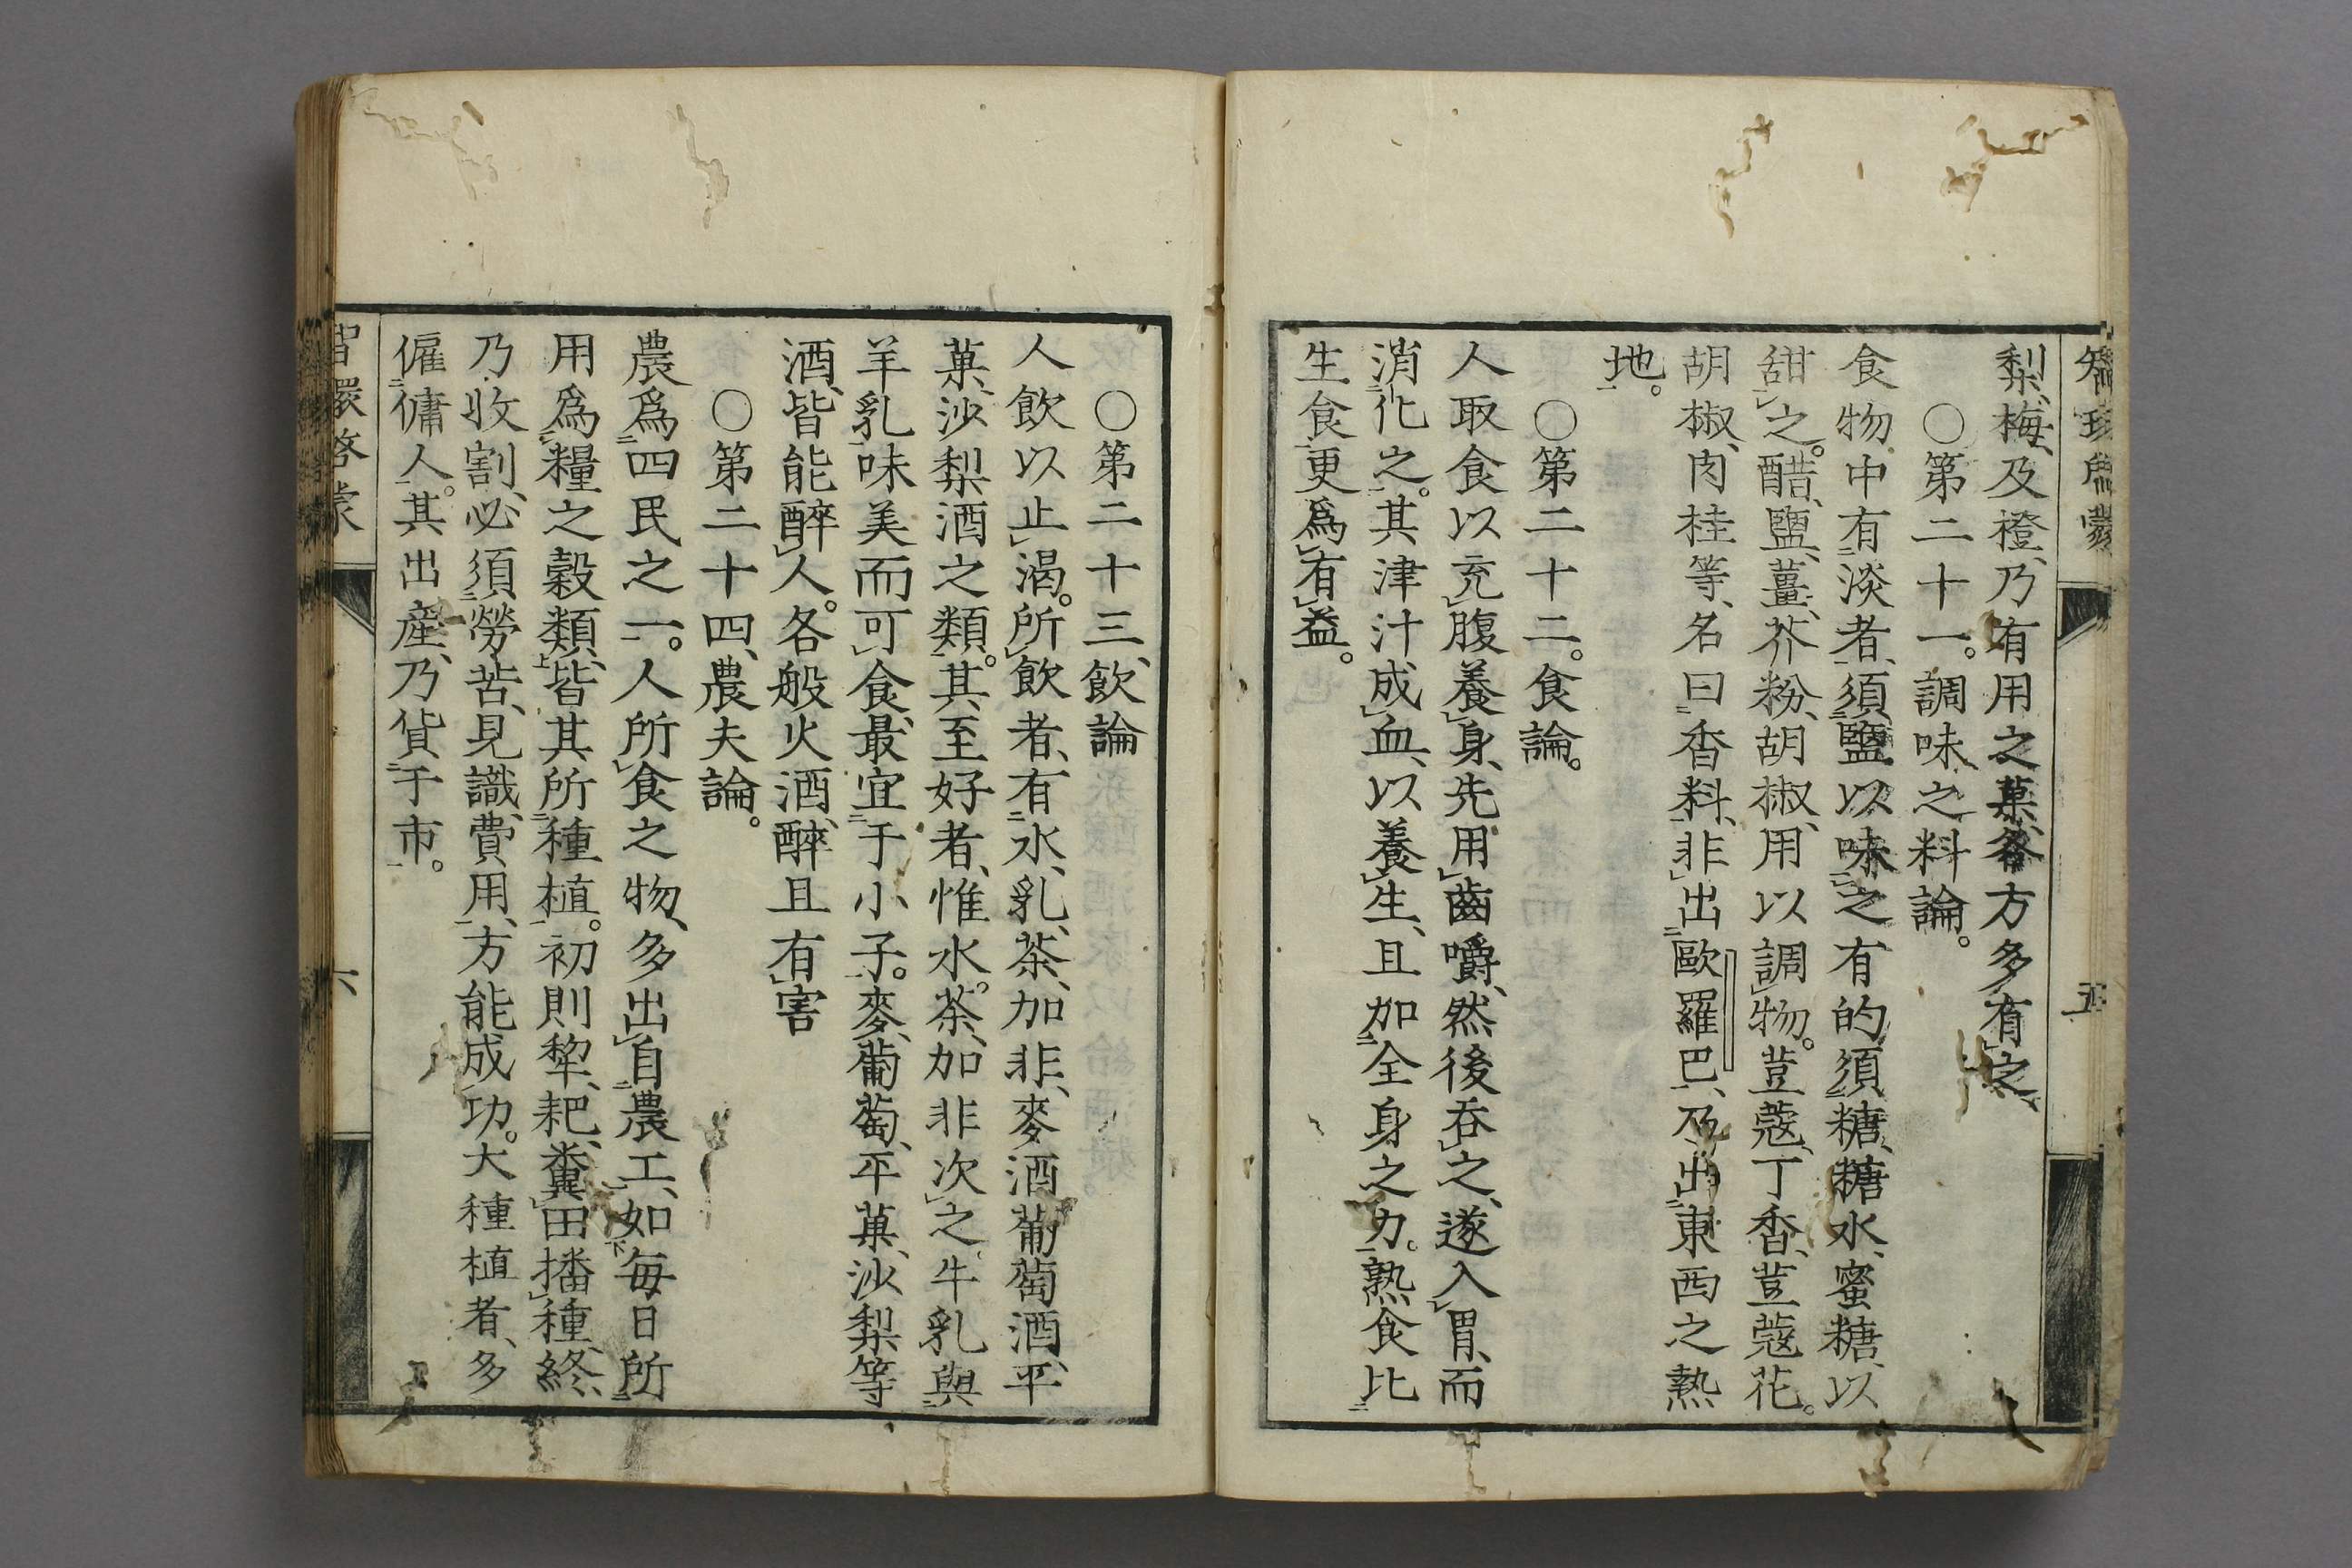 智環啟蒙
五
梨、梅、及橙、乃有用之菓、各方多有之、
○第二十一。調味之料論。
食物中有淡者、須鹽以味之有的須糖、糖水、蜜糖、以
甜之。醋、鹽、薑、芥粉、胡椒、用以調物。荳蔻、丁香、荳蔻花。
胡椒、肉桂等、名曰香料、非出歐羅巴、乃出東西之熱
地。
○第二十二。食論。
人取食以充腹養身、先用齒嚼、然後吞之、遂入胃、而
消化之。其津汁成血、以養生、且加全身之力。熟食比
生食更爲有益。
○第二十三、飲論
人飲以止渴。所飲者、有水、乳、茶、加非、麥酒葡萄酒、平
菓、沙梨酒之類。其至好者、惟水。茶、加非次之牛乳與
羊乳味美而可食、最宜于小子。麥、葡萄、平菓、沙梨等
酒、皆能醉人。各般火酒、醉且有害
○第二十四、農夫論。
農爲四民之一。人所食之物、多出自農工、如每日所
用爲糧之穀類、皆其所種植。初則犂、耙、糞田播種、終
乃收割、必須勞苦、見識、費用、方能成功。大種植者、多
僱傭人。其出產、乃貨于市。
智環啓蒙
六